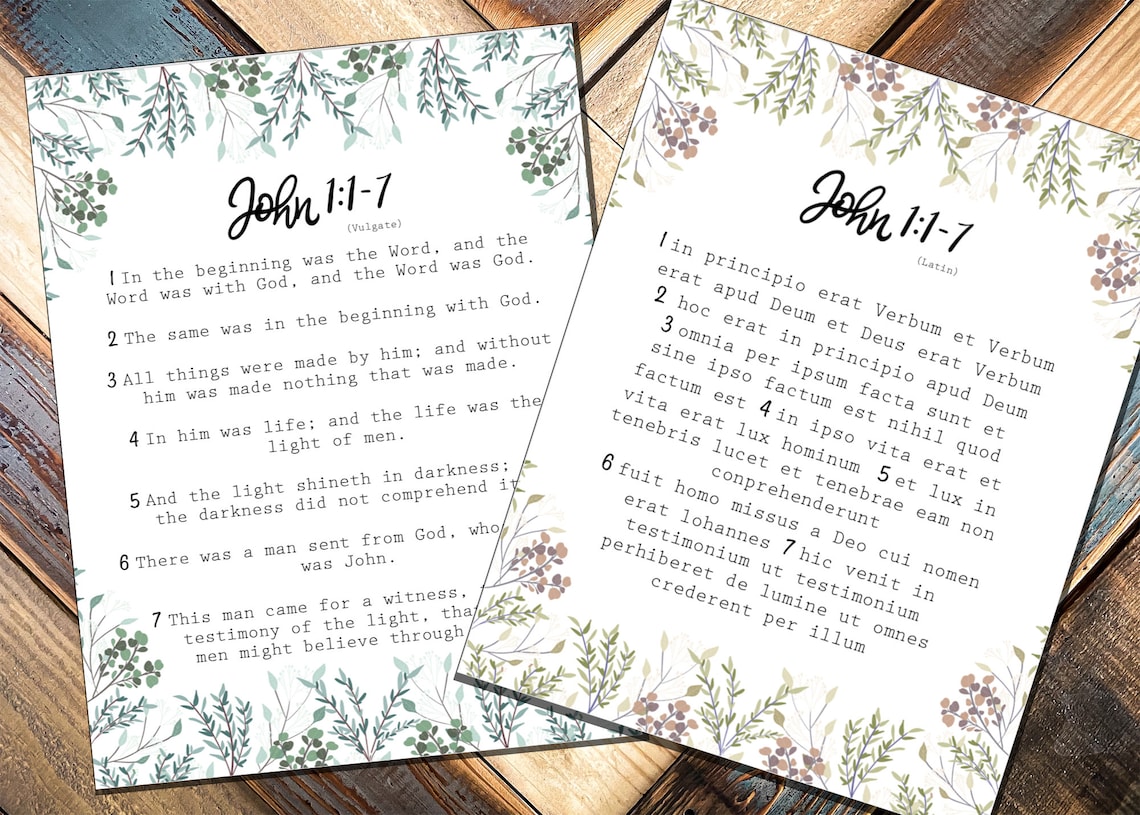 John 1:1-7
(Vulgate)
1 In the beginning was the Word, and the
Word was with God, and the Word was God.
2 The same was in the beginning with God.
3 All things were made by him; and without
him was made nothing that was made.
4 In him was life; and the life was the
light of men.
5 And the light shineth in darkness;
the darkness did not comprehend it
6 There was a man sent from God, who
was John.
7 This man came for a witness,
testimony of the light, tha
men might believe through
John 1:1-7
(Latin)
1 in principio erat Verbum et Verbum
erat apud Deum et Deus erat Verbum
2 hoc erat in principio apud Deum
3 omnia per ipsum facta sunt et
sine ipso factum est nihil quod
factum est 4 in ipso vita erat et
vita erat lux hominum 5 et lux in
tenebris lucet et tenebrae eam non
conprehenderunt
6 fuit homo missus a Deo cui nomen
erat lohannes 7 hic venit in
testimonium ut testimonium
perhiberet de lumine ut omnes
crederent per illum